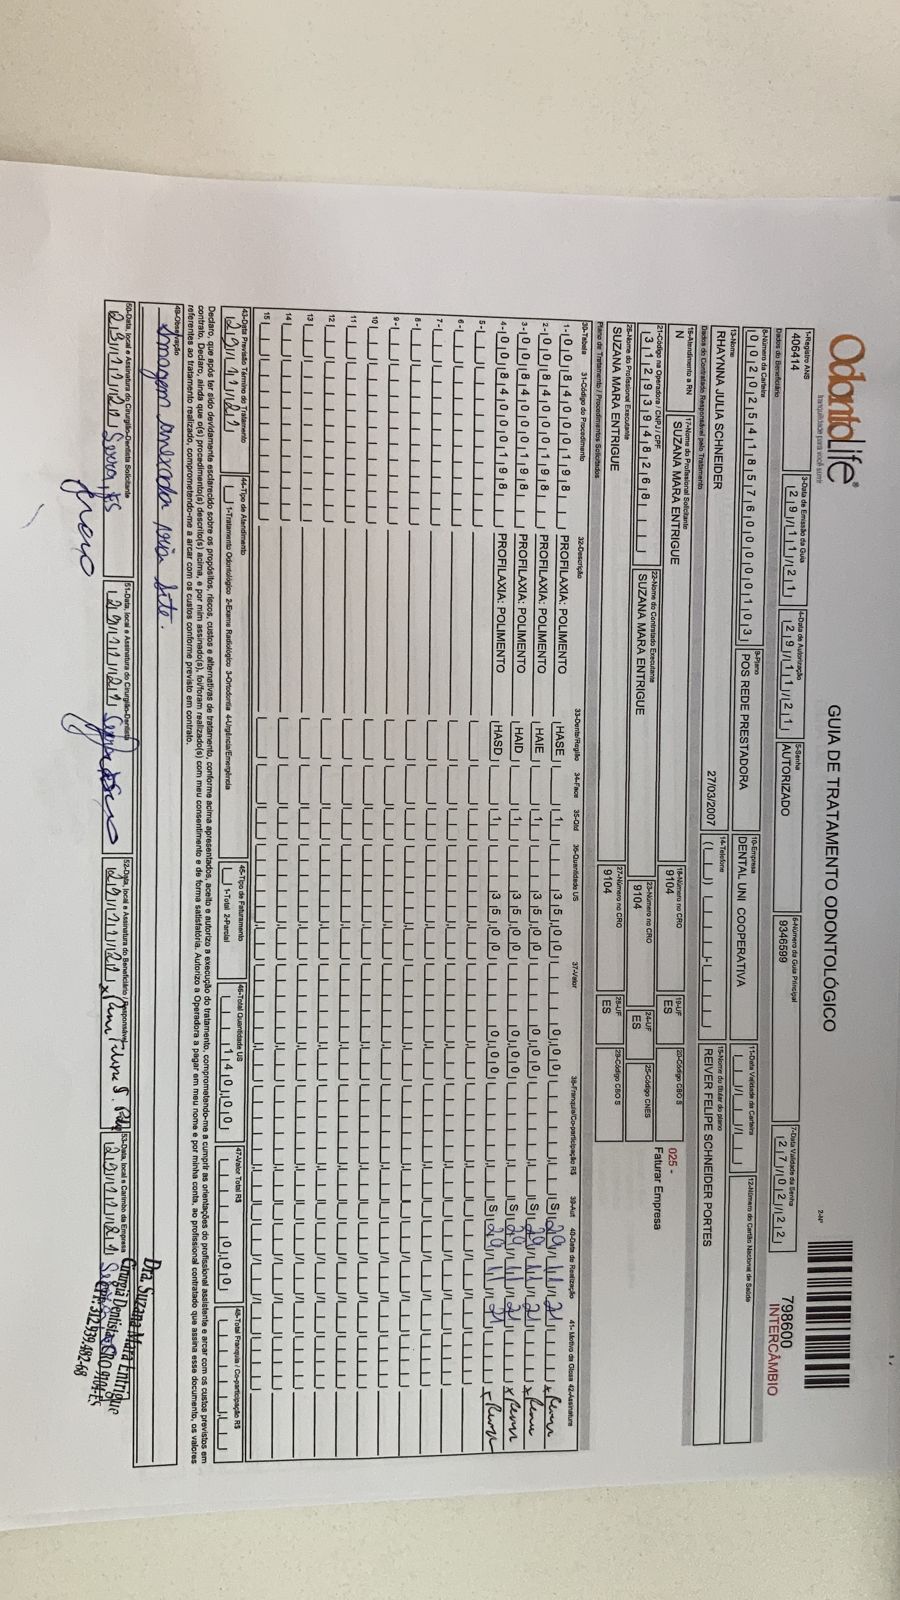 OdontoLife®
tranquilidade para você sorrir
GUIA DE TRATAMENTO ODONTOLÓGICO
2-Nº
798600
INTERCÂMBIO
1-Registro ANS
406414
3-Data de Emissão da Guia
29/11/21
4-Data de Autorização
29/11/21
5-Senha
AUTORIZADO
6-Número da Guia Principal
9346599
7-Data Validade da Senha
27/02/22
Dados do Beneficiário
8-Número da Carteira
00202541857600000103
9-Plano
POS REDE PRESTADORA
10-Empresa
DENTAL UNI COOPERATIVA
11-Data Validade da Carteira
12-Número do Cartão Nacional de Saúde
13-Nome
RHAYNNA JULIA SCHNEIDER
27/03/2007
14-Telefone
15-Nome do titular do plano
REIVER FELIPE SCHNEIDER PORTES
Dados do Contratado Responsável pelo Tratamento
16-Atendimento a RN
N
17-Nome do Profissional Solicitante
SUZANA MARA ENTRIGUE
18-Número no CRO
9104
19-UF
ES
20-Código CBO S
025 -
Faturar Empresa
21-Código na Operadora / CNPJ / CPF
31293948268
22-Nome do Contratado Executante
SUZANA MARA ENTRIGUE
23-Número no CRO
9104
24-UF
ES
25-Código CNES
26-Nome do Profissional Executante
SUZANA MARA ENTRIGUE
27-Número no CRO
9104
28-UF
ES
29-Código CBO S
Plano de Tratamento / Procedimentos Solicitados
30-Tabela 31-Código do Procedimento 32-Descrição 33-Dente/Região 34-Face 35-Qtd 36-Quantidade US 37-Valor 38-Franquia/Co-participação R$ 39-Aut 40-Data de Realização 41- Motivo da Glosa 42-Assinatura
1- 00 84000198 PROFILAXIA: POLIMENTO HASE 1 35,00 0,00 S 29/11/21
2- 00 84000198 PROFILAXIA: POLIMENTO HAIE 1 35,00 0,00 S 29/11/21
3- 00 84000198 PROFILAXIA: POLIMENTO HAID 1 35,00 0,00 S 29/11/21
4- 00 84000198 PROFILAXIA: POLIMENTO HASD 1 35,00 0,00 S 29/11/21
5-
6-
7-
8-
9-
10
11
12
13
14
15
43-Data Prevista Término do Tratamento
29/11/21
44-Tipo de Atendimento
1-Tratamento Odontológico 2-Exame Radiológico 3-Ortodontia 4-Urgência/Emergência
45-Tipo de Faturamento
1-Total 2-Parcial
46-Total Quantidade US
140,00
47-Valor Total R$
0,00
48-Total Franquia / Co-participação R$
Declaro, que após ter sido devidamente esclarecido sobre os propósitos, riscos, custos e alternativas de tratamento, conforme acima apresentados, aceito e autorizo a execução do tratamento, comprometendo-me a cumprir as orientações do profissional assistente e arcar com os custos previstos em
contrato. Declaro, ainda que o(s) procedimento(s) descrito(s) acima, e por mim assinado(s), foi/foram realizado(s) com meu consentimento e de forma satisfatória. Autorizo a Operadora a pagar em meu nome e por minha conta, ao profissional contratado que assina esse documento, os valores
referentes ao tratamento realizado, comprometendo-me a arcar com os custos conforme previsto em contrato.
49-Observação
Imagem anexada via site.
50-Data, local e Assinatura do Cirurgião-Dentista Solicitante
Serra, ES
51-Data, local e Assinatura do Cirurgião-Dentista
52-Data, local e Assinatura do Beneficiário / Responsável
53-Data, local e Carimbo da Empresa
Dra. Suzana Mara Entrigue
Cirurgiã Dentista CRO 9104-ES
CPF: 312.939.482-68